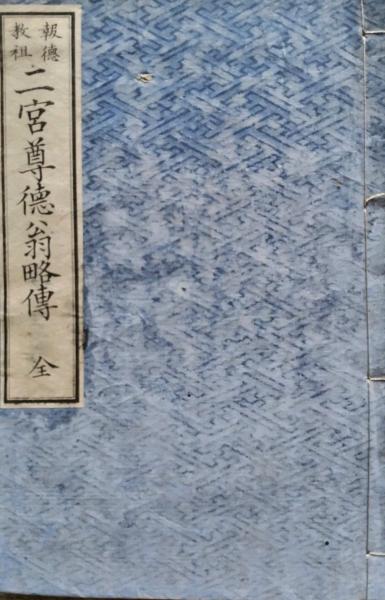 報德
教祖
二宮尊德翁略傳 全